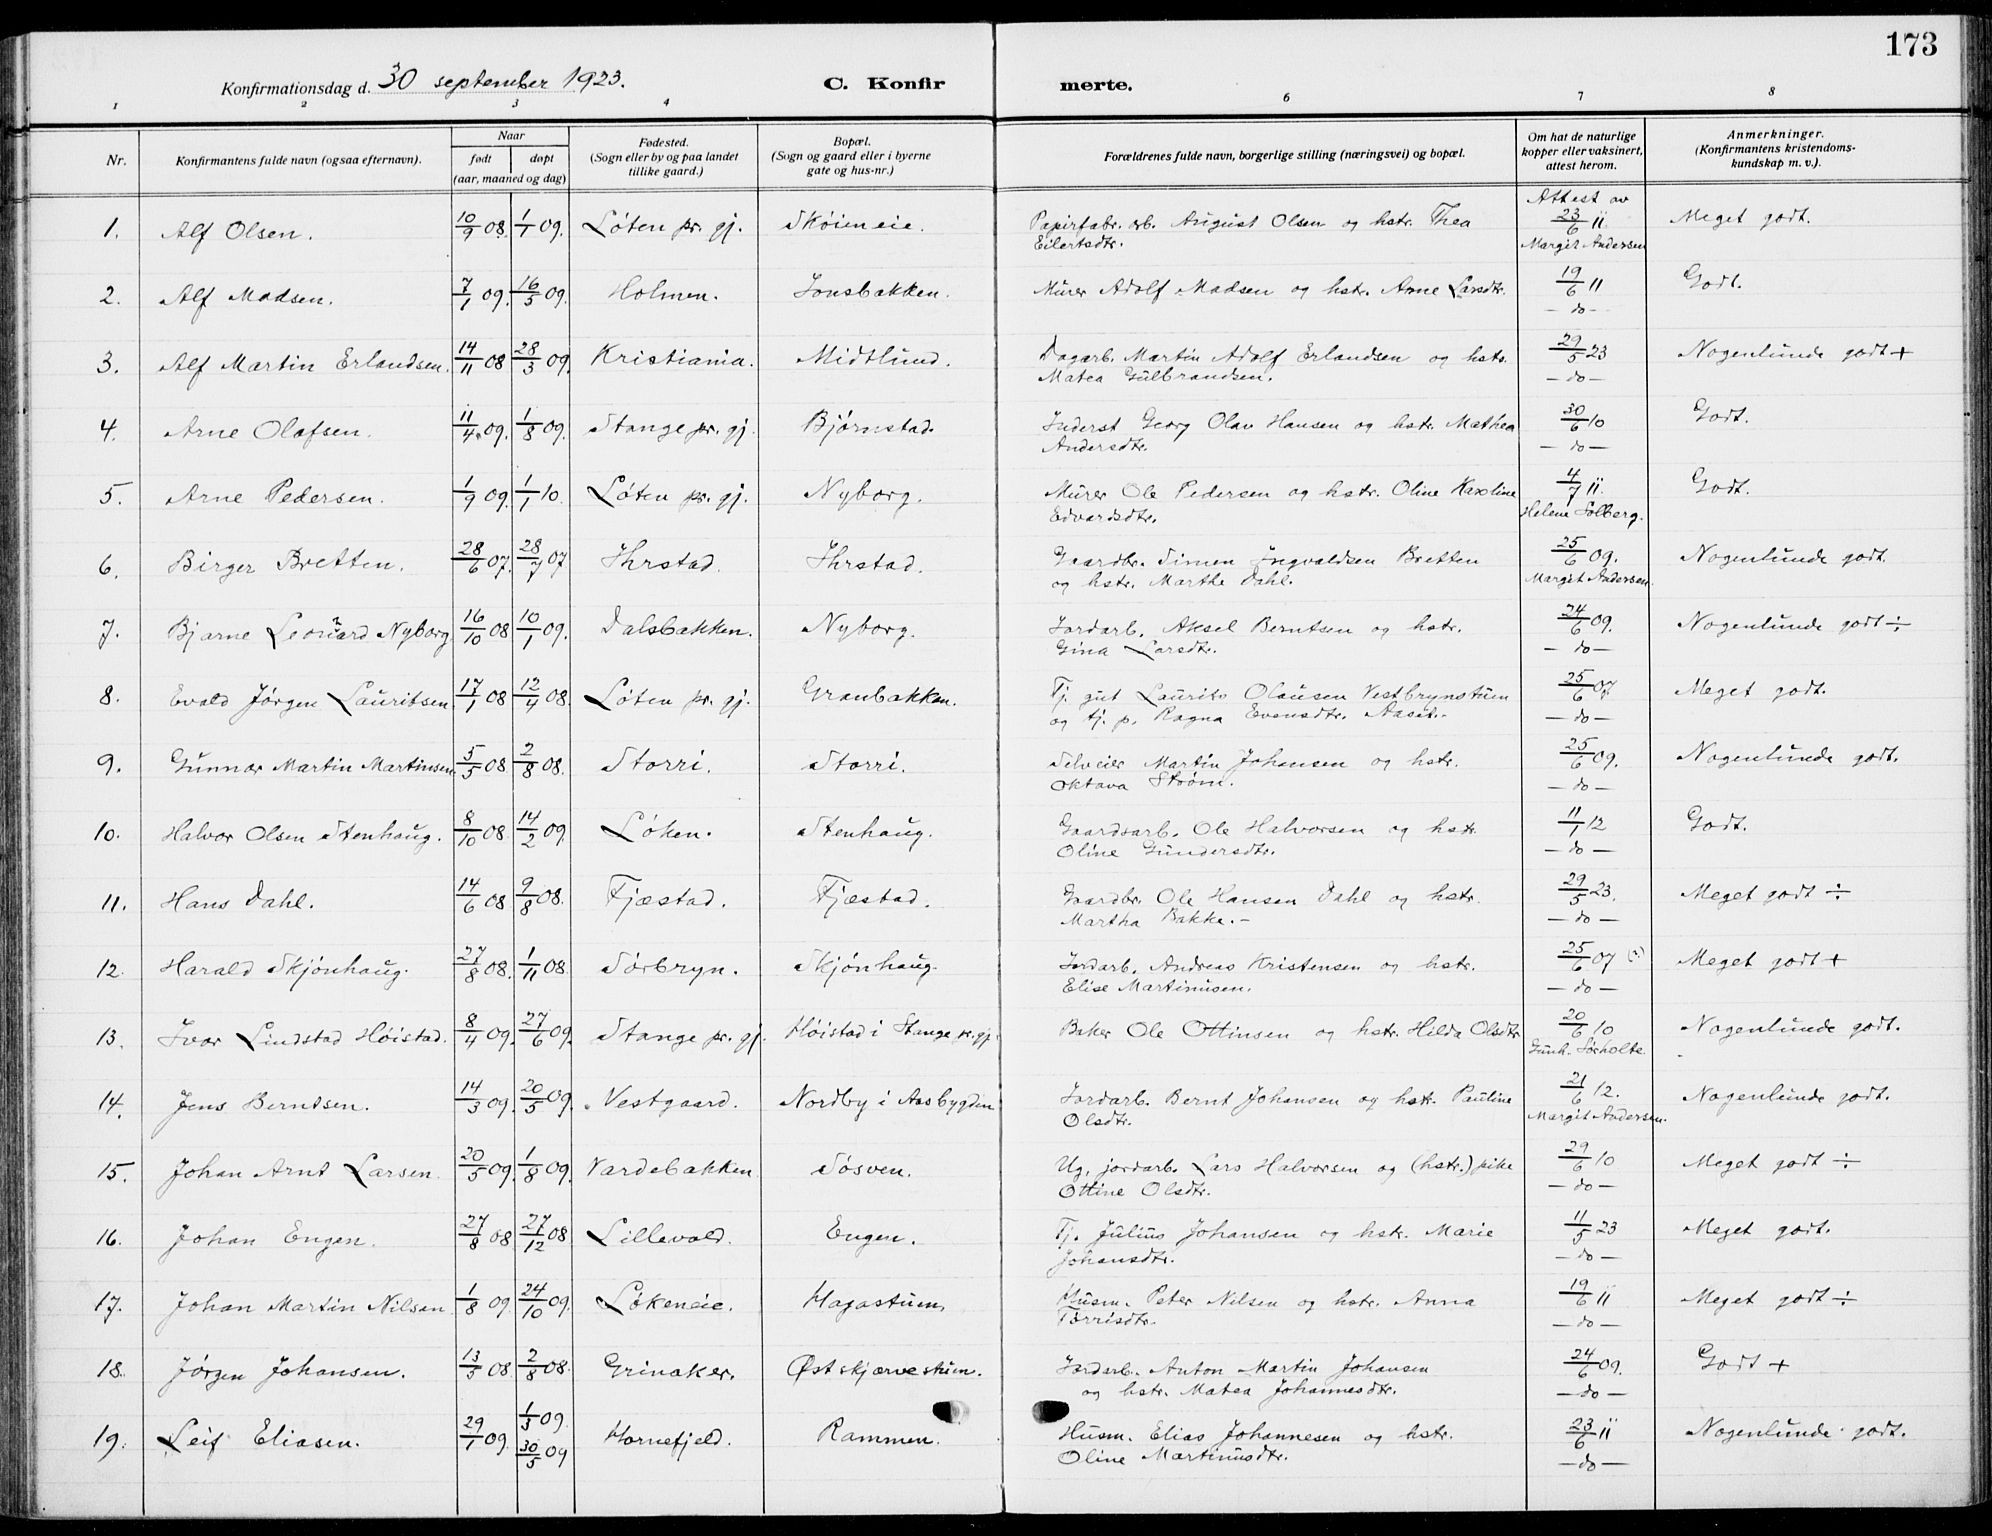 173
Konfirmationsdag d. 30 september 1923. C. Konfir merte.
1 2 3 4 6 7 8
Nr. Konfirmantens fulde navn (ogsaa efternavn). Naar født døpt (aar, maaned og dag) Fødested. (Sogn eller by og paa landet tillike gaard.) Bopæl. (Sogn og gaard eller i byerne gate og hus-nr.) Forældrenes fulde navn, borgerlige stilling (næringsvei) og bopæl. Om hat de naturlige kopper eller vaksinert, attest herom. Anmerkninger. (Konfirmantens kristendoms-kundskap m. v.).
1. Alf Olsen. 10/9 08. 1/1 09. Løten pr. gj. Skøieneie. Papirfabr. arb. August Olsen og hstr. Thea Eilertsdtr. Attest av 23/6 11. Margit Andersen Meget godt.
2. Alf Madsen. 7/1 09. 16/5 09. Holmen. Jonsbakken. Murer Adolf Madsen og hstr. Arne Larsdtr. 19/6 11 — do — Godt.
3. Alf Martin Erlandsen. 14/11 08 28/3 09. Kristiania. Midtlund. Dagarb. Martin Adolf Erlandsen og hstr. Matea Gulbrandsen. 29/5 23 — do — Nogenlunde godt +
4. Arne Olafsen. 11/4 09. 1/8 09. Stange pr. gj. Bjørnstad. Inderst Georg Olav Hansen og hstr. Mathea Andersdtr. 30/6 10 — do — Godt.
5. Arne Pedersen. 1/9 09. 1/1 10. Løten pr. gj. Nyborg. Murer Ole Pedersen og hstr. Oline Karoline Edvardsdtr. 4/7 11. Helene Solberg. Godt.
6. Birger Bretten. 28/6 07. 28/7 07 Ihrstad. Ihrstad. Gaardbr. Simen Ingvaldsen Bretten og hstr. Marthe Dahl. 25/6 09. Margit Andersen. Nogenlunde godt.
7. Bjarne Leonard Nyborg 16/10 08 10/1 09. Dalsbakken. Nyborg. Jordarb. Aksel Berntsen og hstr. Gina Larsdtr. 24/6 09. — do — Nogenlunde godt ÷
8. Evald Jørgen Lauritsen 17/1 08 12/4 08. Løten pr. gj. Granbakken. Tj. gut Laurits Olausen Vestbrynstuen og tj. p. Ragna Evensdtr. Aaset. 25/6 07. — do — Meget godt.
9. Gunnar Martin Martinsen 5/5 08. 2/8 08. Storri. Storri. Selveier Martin Johansen og hstr. Oktava Strøm. 25/6 09. — do — Nogenlunde godt.
10. Halvor Olsen Stenhaug. 8/10 08. 14/2 09. Løken. Stenhaug. Gaardsarb. Ole Halvorsen og hstr. Oline Gundersdtr. 11/1 12 — do — Godt.
11. Hans Dahl. 14/6 08 9/8 08. Fjæstad. Fjæstad. Gaardbr. Ole Hansen Dahl og hstr. Martha Bakke. — 29/5 23. — do — Meget godt ÷
12. Harald Skjønhaug. 27/8 08. 1/11 08. Sørbryn. Skjønhaug. Jordarb. Andreas Kristensen og hstr. Elise Martinusen. 25/6 07 — do — Meget godt +
13. Ivar Lindstad Høistad. 8/4 09. 27/6 09. Stange pr. gj. Høistad i Stange pr. gj. Baker Ole Ottinsen og hstr. Hilda Olsdtr 20/6 10 Gunh. Sørholte. Nogenlunde godt.
14. Jens Berntsen. 14/3 09. 20/5 09. Vestgaard. Nordby i Aasbygden Jordarb. Bernt Johansen og hstr. Pauline Olsdtr. 21/6 12. Margit Andersen. Nogenlunde godt.
15. Johan Arnt Larsen. 20/5 09. 1/8 09. Vardebakken Søsven. Ug. jordarb. Lars Halvorsen og (hstr.) pike Ottine Olsdtr. 29/6 10 — do — Meget godt ÷
16. Johan Engen. 27/8 08 27/12 08 Lillevold. Engen. Tj. Julius Johansen og hstr. Marie Johansdtr. 11/5 23 — do — Meget godt.
17. Johan Martin Nilsen 1/8 09. 24/10 09. Løkeneie. Hagastuen, Husm. Peter Nilsen og hstr. Anna Torrisdtr. 19/6 11 — do — Meget godt ÷
18. Jørgen Johansen. 13/5 08 2/8 08. Grinaker. Østskjærvestuen. Jordarb. Anton Martin Johansen og hstr. Matea Johannesdtr. 24/6 09. — do — Godt +
19. Leif Eliasen. 29/1 09. 1/3 09. 30/5 09 Hornefjeld. Rammen. Husm. Elias Johannesen og hstr. Oline Martinusdtr. 23/6 11 — do — Nogenlunde godt.